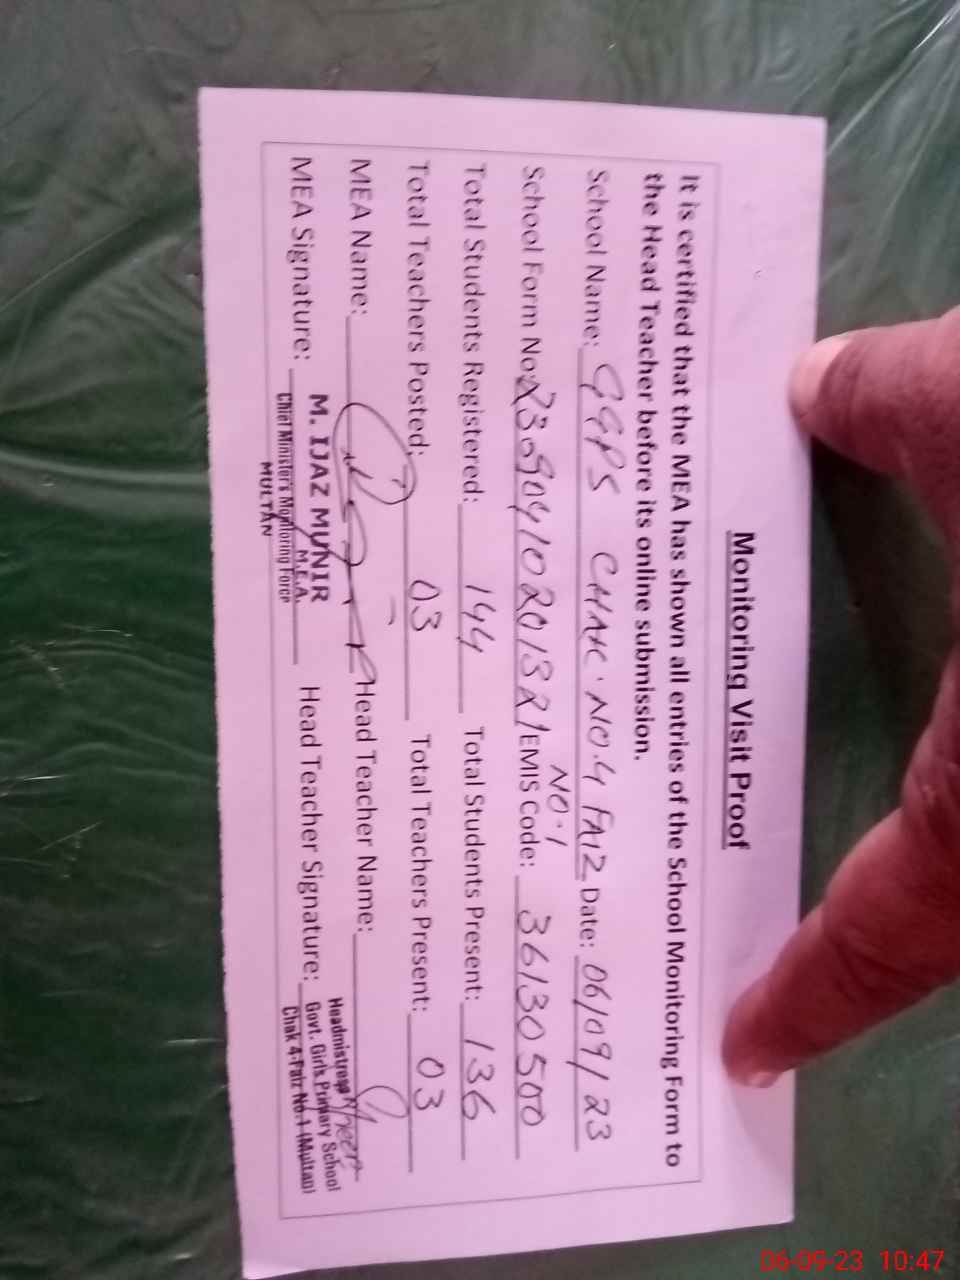 Monitoring Visit Proof
It is certified that the MEA has shown all entries of the School Monitoring Form to
the Head Teacher before its online submission.
School Name: GGPS CHAK NO.4 FAIZ Date: 06/09/23
NO.1
School Form No: EMIS Code: 36130500
Total Students Registered: 144 Total Students Present: 136
Total Teachers Posted: 03 Total Teachers Present: 03
MEA Name: Head Teacher Name:
MEA Signature: Head Teacher Signature:
M. IJAZ MUNIR
M.E.A.
Chief Minister's Monitoring Force
MULTAN
Headmistress
Govt. Girls Primary School
Chak 4-Faiz No.1 (Multan)
06-09-23 10:47